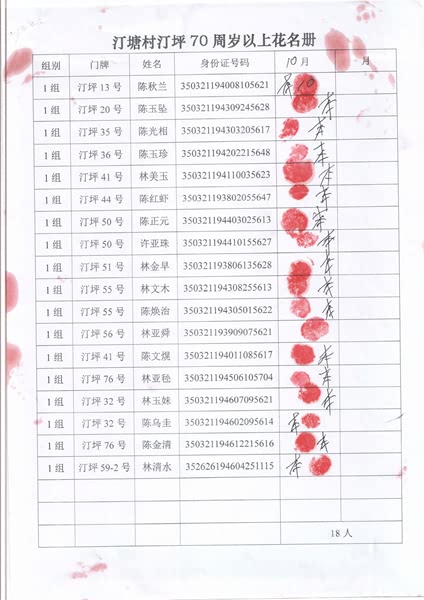 汀塘村汀坪 70 周岁以上花名册
组别 门牌 姓名 身份证号码 10月 月
1 组 汀坪 13 号 陈秋兰 350321194008105621
1 组 汀坪 20 号 陈玉坠 350321194309245628
1 组 汀坪 35 号 陈光相 350321194303205617
1 组 汀坪 36 号 陈玉珍 350321194202215648
1 组 汀坪 41 号 林美玉 350321194110035623
1 组 汀坪 44 号 陈红虾 350321193802055647
1 组 汀坪 50 号 陈正元 350321194403025613
1 组 汀坪 50 号 许亚珠 350321194410155627
1 组 汀坪 51 号 林金早 350321193806135628
1 组 汀坪 55 号 林文木 350321194308255613
1 组 汀坪 55 号 陈焕治 350321194305015622
1 组 汀坪 56 号 林亚舜 350321193909075621
1 组 汀坪 41 号 陈文焜 350321194011085617
1 组 汀坪 76 号 林亚秾 350321194506105704
1 组 汀坪 32 号 林玉妹 350321194607095621
1 组 汀坪 32 号 陈乌圭 350321194602095614
1 组 汀坪 76 号 陈金清 350321194612215616
1 组 汀坪 59-2 号 林清水 352626194604251115
18 人